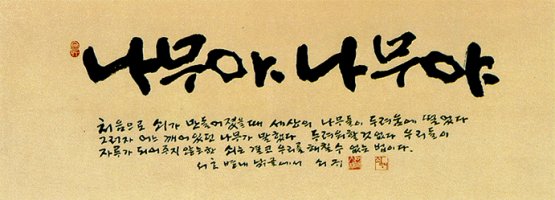 나무야 나무야
처음으로 쇠가 만들어졌을때 세상의 나무들이 두려움에 떨었다
그러자 어느 깨어있던 나무가 말했다 두려워할것없다 우리들이
자루가 되어주지 않는한 쇠는 결코 우리를 해칠 수 없는 법이다.
서초 에서 쇠귀